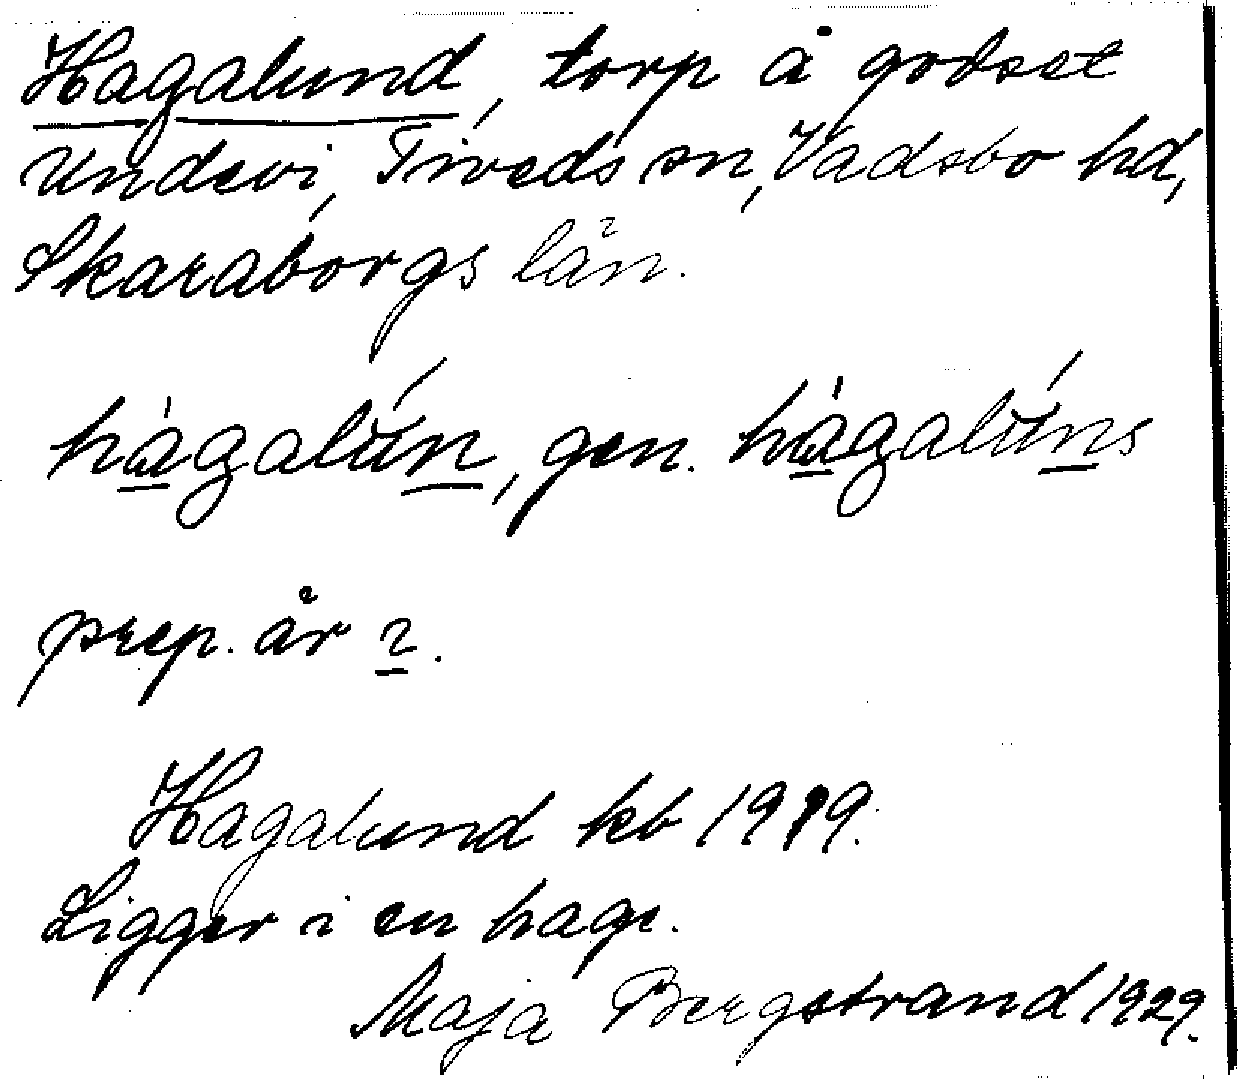 Hagalund, torp å godset
Undevi, Tiveds sn, Vadsbo hd,
Skaraborgs län.
hàgalún, gen. hàgalúns
prep. är i.
Hagalund kb 1919.
Ligger i en hage.
Maja Bergstrand 1929.